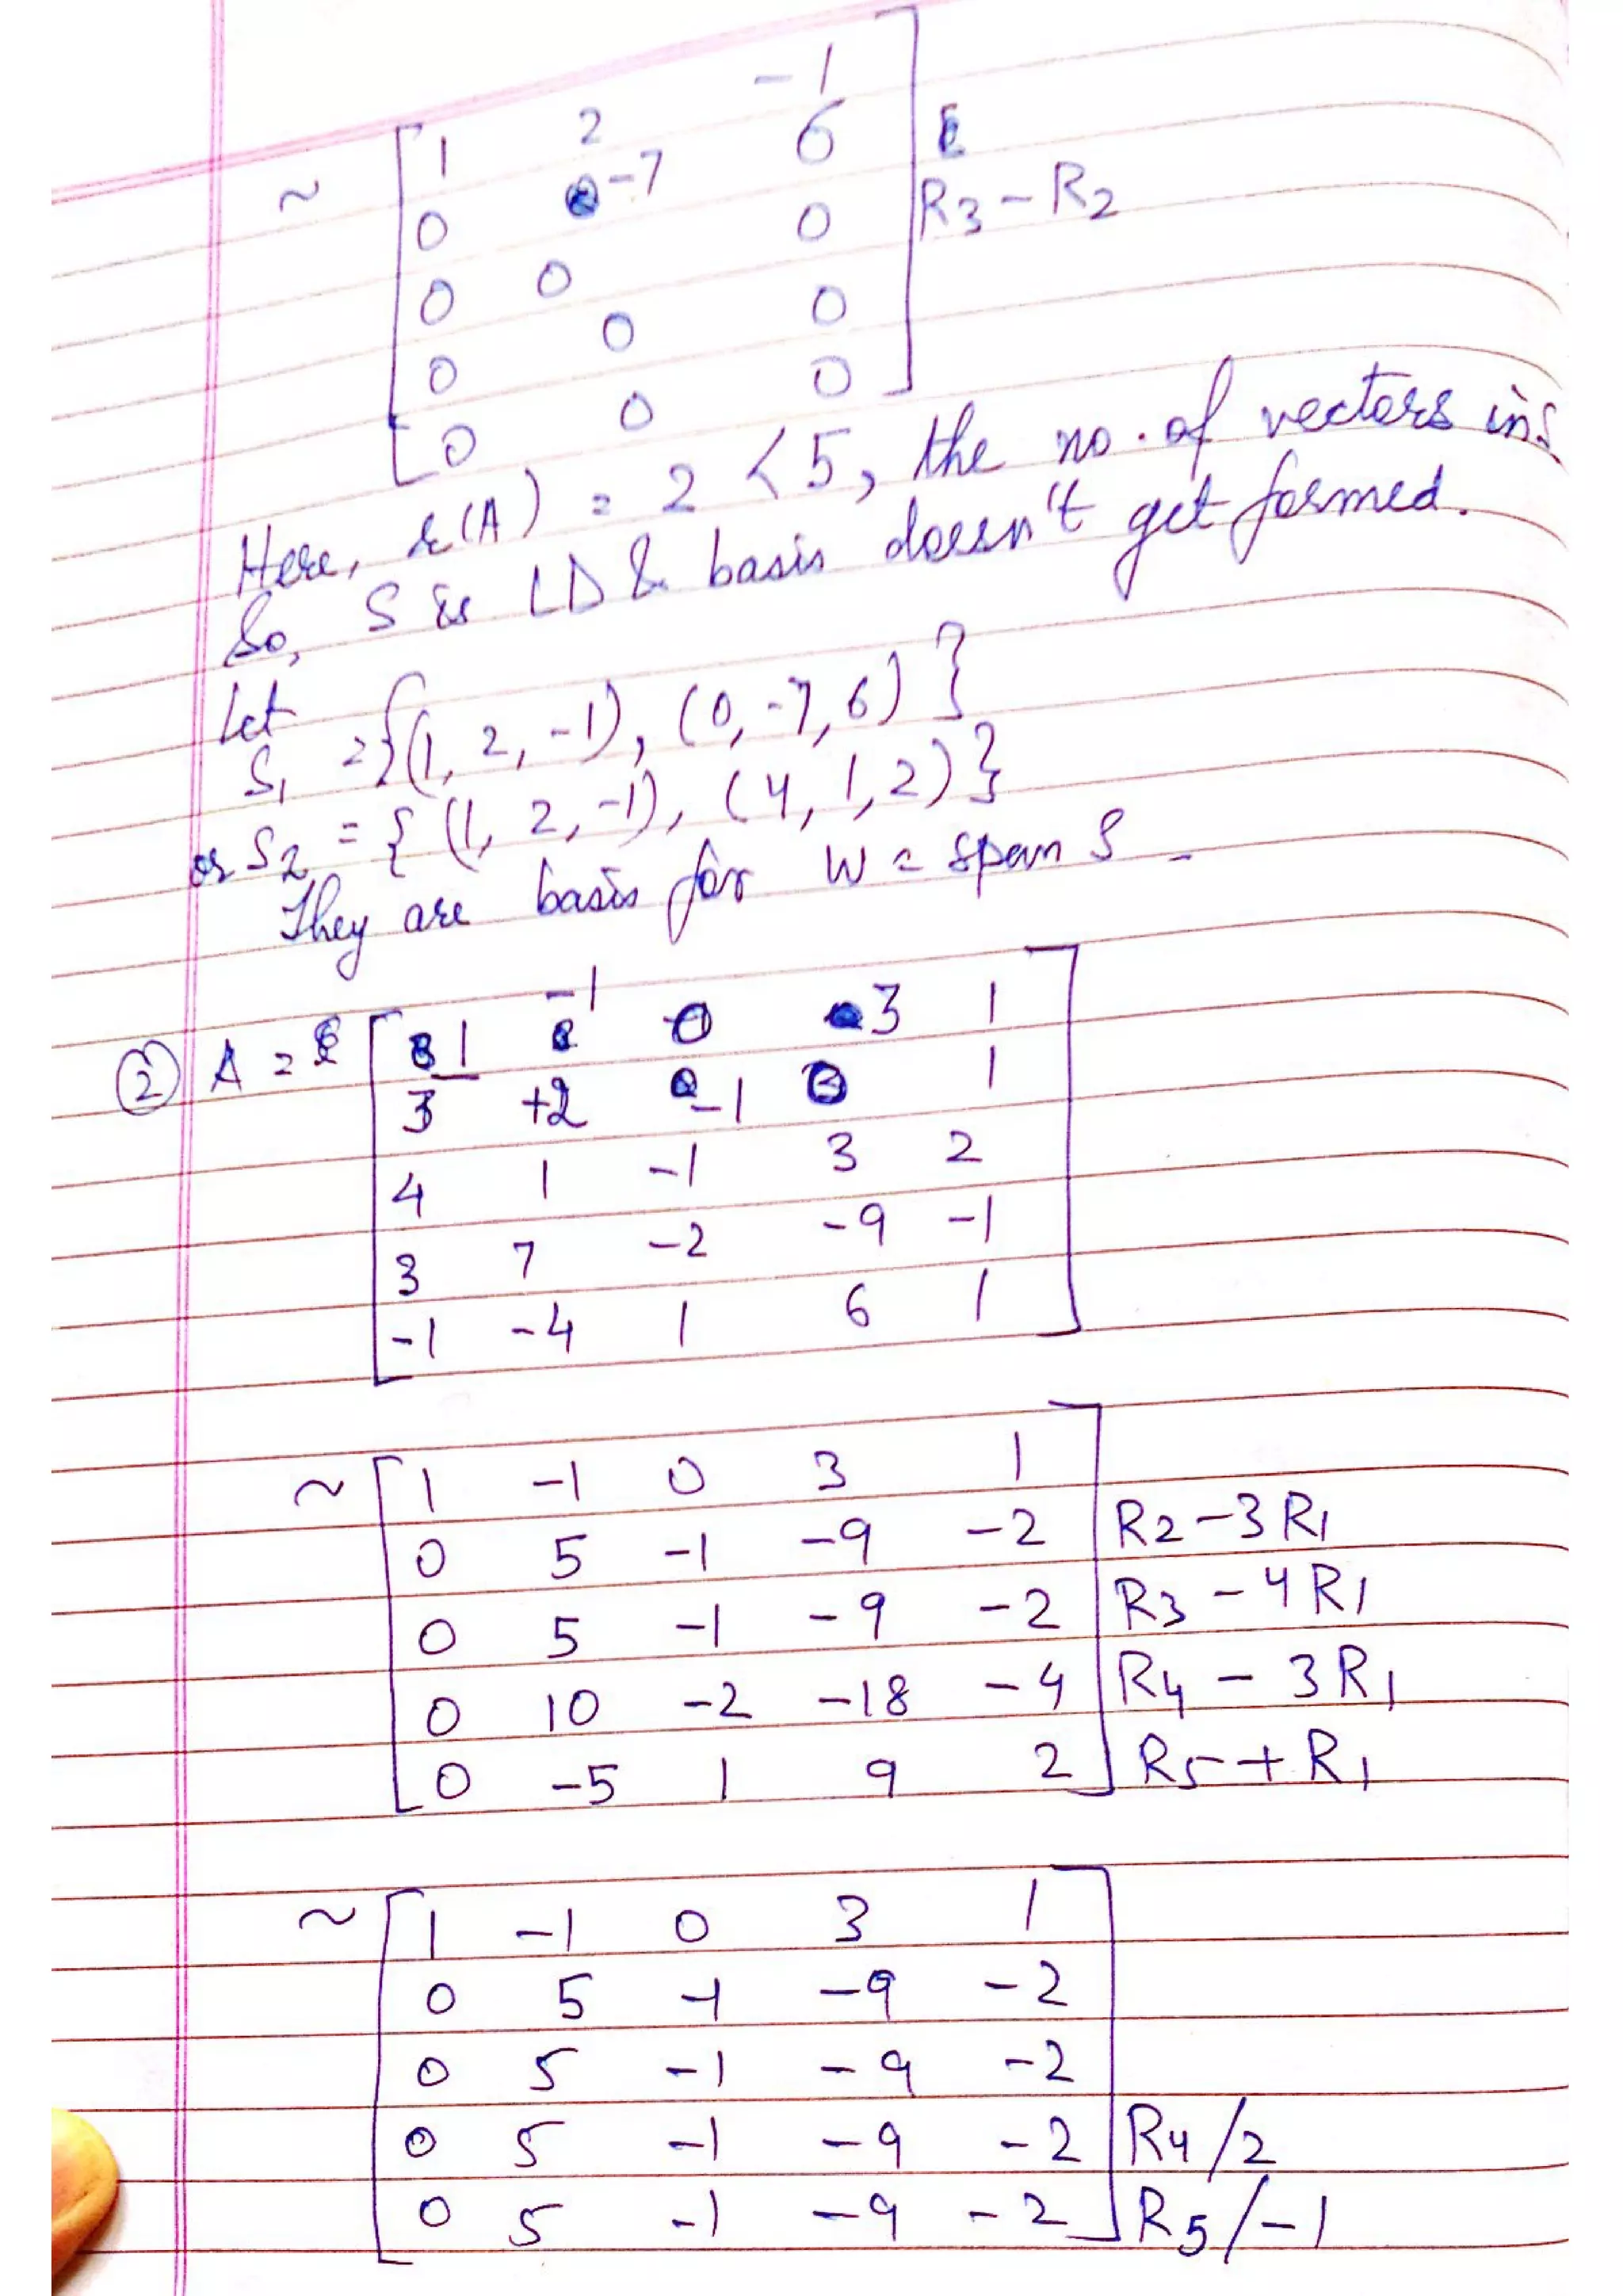 ~ [ 1 2 -1
0 -7 6
0 0 0 R3 - R2
0 0 0
0 0 0 ]
Here, r(A) = 2 < 5, the no. of vectors in S
So, S is LD & basis doesn't get formed.
Let
S1 = {(1, 2, -1), (0, -7, 6)}
or S2 = {(1, 2, -1), (4, 1, 2)}
They are basis for W = span S
(2) A = [ 1 -1 0 3 1
3 +2 -1 0 1
4 1 -1 3 2
3 7 -2 -9 -1
-1 -4 1 6 1 ]
~ [ 1 -1 0 3 1
0 5 -1 -9 -2 R2 - 3R1
0 5 -1 -9 -2 R3 - 4R1
0 10 -2 -18 -4 R4 - 3R1
0 -5 1 9 2 ] R5 + R1
~ [ 1 -1 0 3 1
0 5 -1 -9 -2
0 5 -1 -9 -2
0 5 -1 -9 -2 R4/2
0 5 -1 -9 -2 ] R5/-1